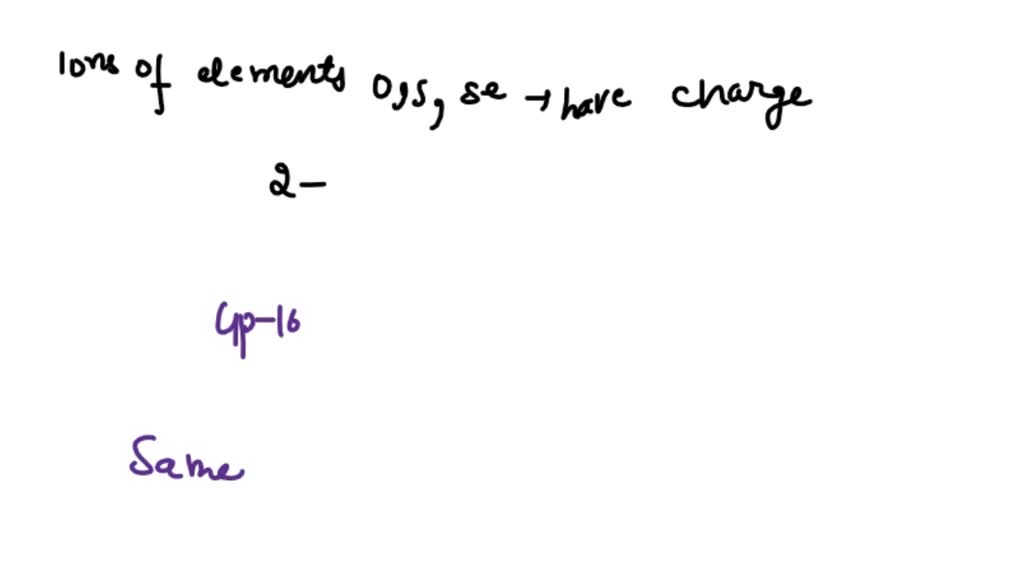 Ions of elements O,S, Se → have charge
2-
Gp-16
Same